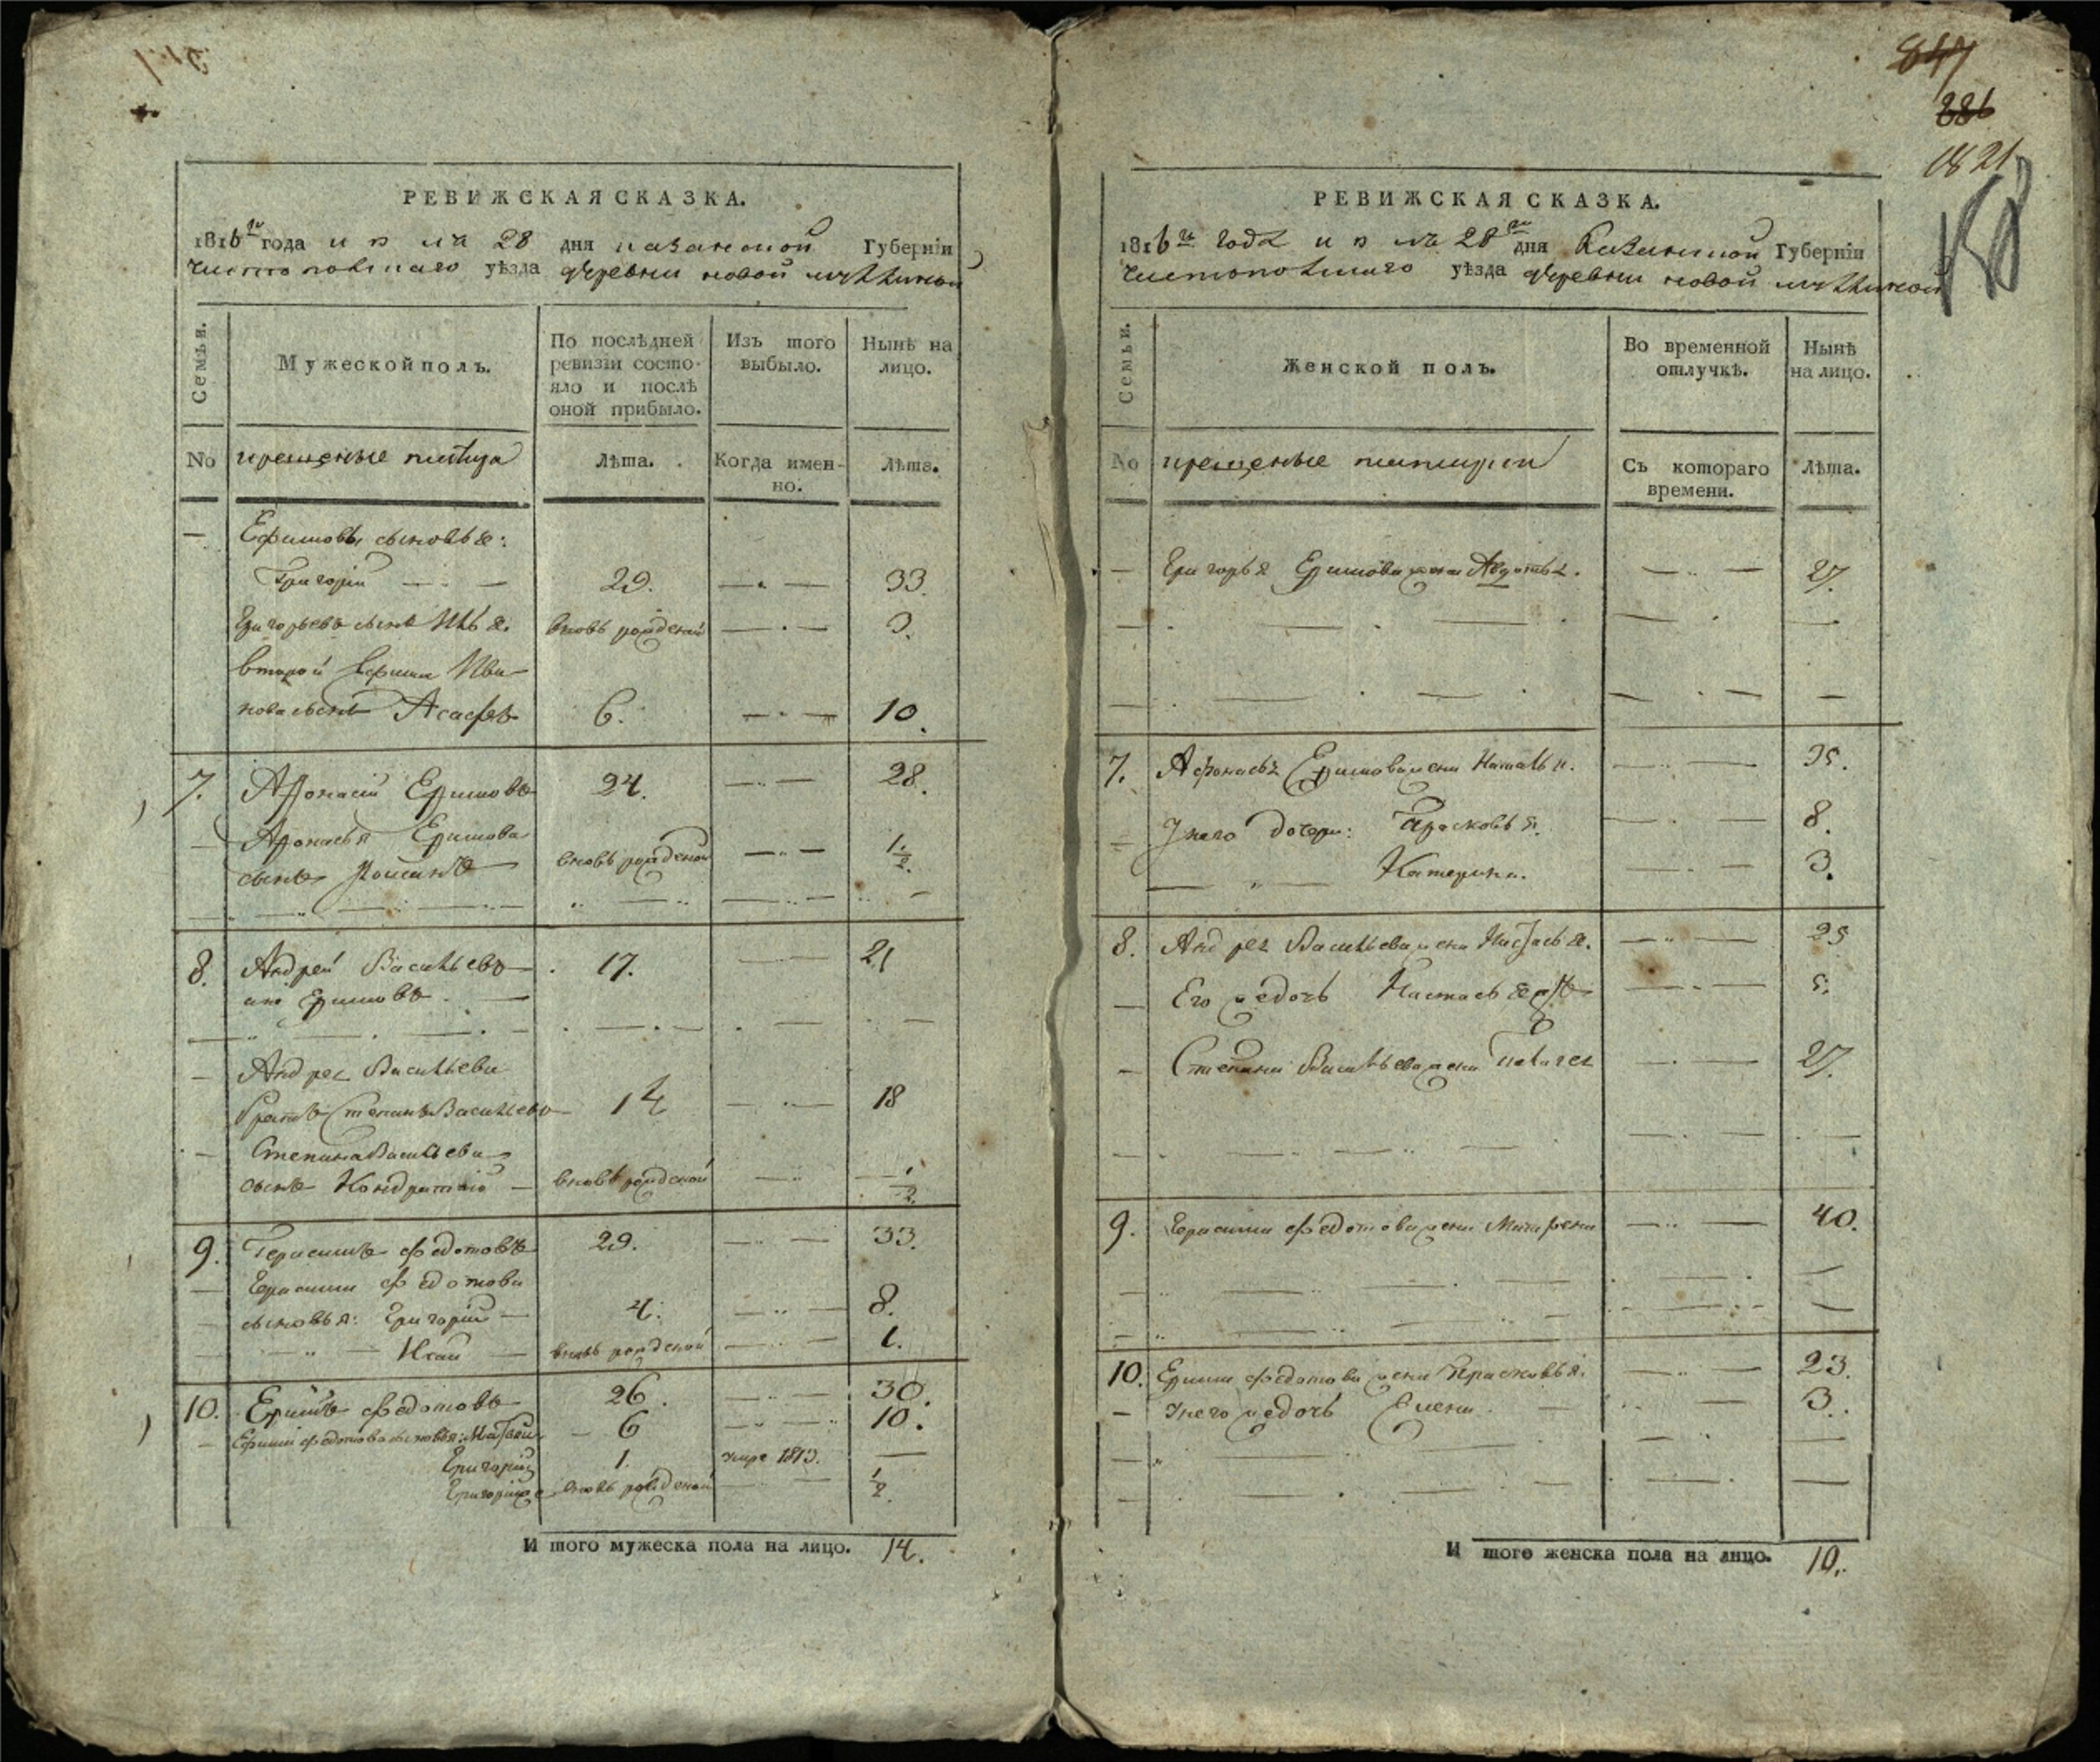 847
886
1821
РЕВИЖСКАЯ СКАЗКА.
1816го года июля 28 дня казанской Губернїи
чистопольского уѣзда деревни новой
Семьи.
Мужеской полъ.
По послѣдней ревизїи состо-
яло и послѣ оной прибыло.
Изъ того выбыло.
Нынѣ на лицо.
No крещеные
Лѣта.
Когда имен-
но.
Лѣта.
— Ефимовы сыновья:
Григорїй — 29. — 33.
Григорьевъ сынъ Илья. вновь рожденой — 3.
второй Ефима Ива-
нова сынъ Асафъ 6. — 10.
7. Афонасїй Ефимовъ 24. — 28.
Афонасья Ефимова
сынъ вновь рожденой — 1 1/2
8. Андрей Васильевъ 17. — 21
онъ Ефимовъ
Андрея Васильева
братъ Степанъ Васильевъ 14 — 18
Степана Васильева
сынъ Кондратїй вновь рожденой — 1/2
9. Герасимъ Федотовъ 29. — 33.
Герасима Федотова
сыновья: Григорїй 4. — 8.
вновь рожденой — 1.
10. Ефимъ Федотовъ 26. — 30.
Ефима Федотова сыновья: 6 — 10.
Григорїй 1. умре 1813. —
Григорїй же вновь рожденой — 1/2
И того мужеска пола на лицо. 14.
РЕВИЖСКАЯ СКАЗКА.
1816го года июля 28го дня Казанской Губернїи
чистопольского уѣзда деревни новой
Семьи.
Женской полъ.
Во временной отлучкѣ.
Нынѣ на лицо.
No крещеные
Съ котораго времени.
Лѣта.
— Григорья Ефимова жена Авдотья. — 27.
7. Афонасья Ефимова жена Наталья. — 35.
У него дочери: Прасковья. — 8.
Катерина. — 3.
8. Андрея Васильева жена Настасья. — 25
Его же дочь Настасья же — 5.
Степана Васильева жена Палагея — 27.
9. Герасима Федотова жена — 40.
10. Ефима Федотова жена Прасковья. — 23.
У него же дочь Елена. — 3.
И того женска пола на лицо. 10.